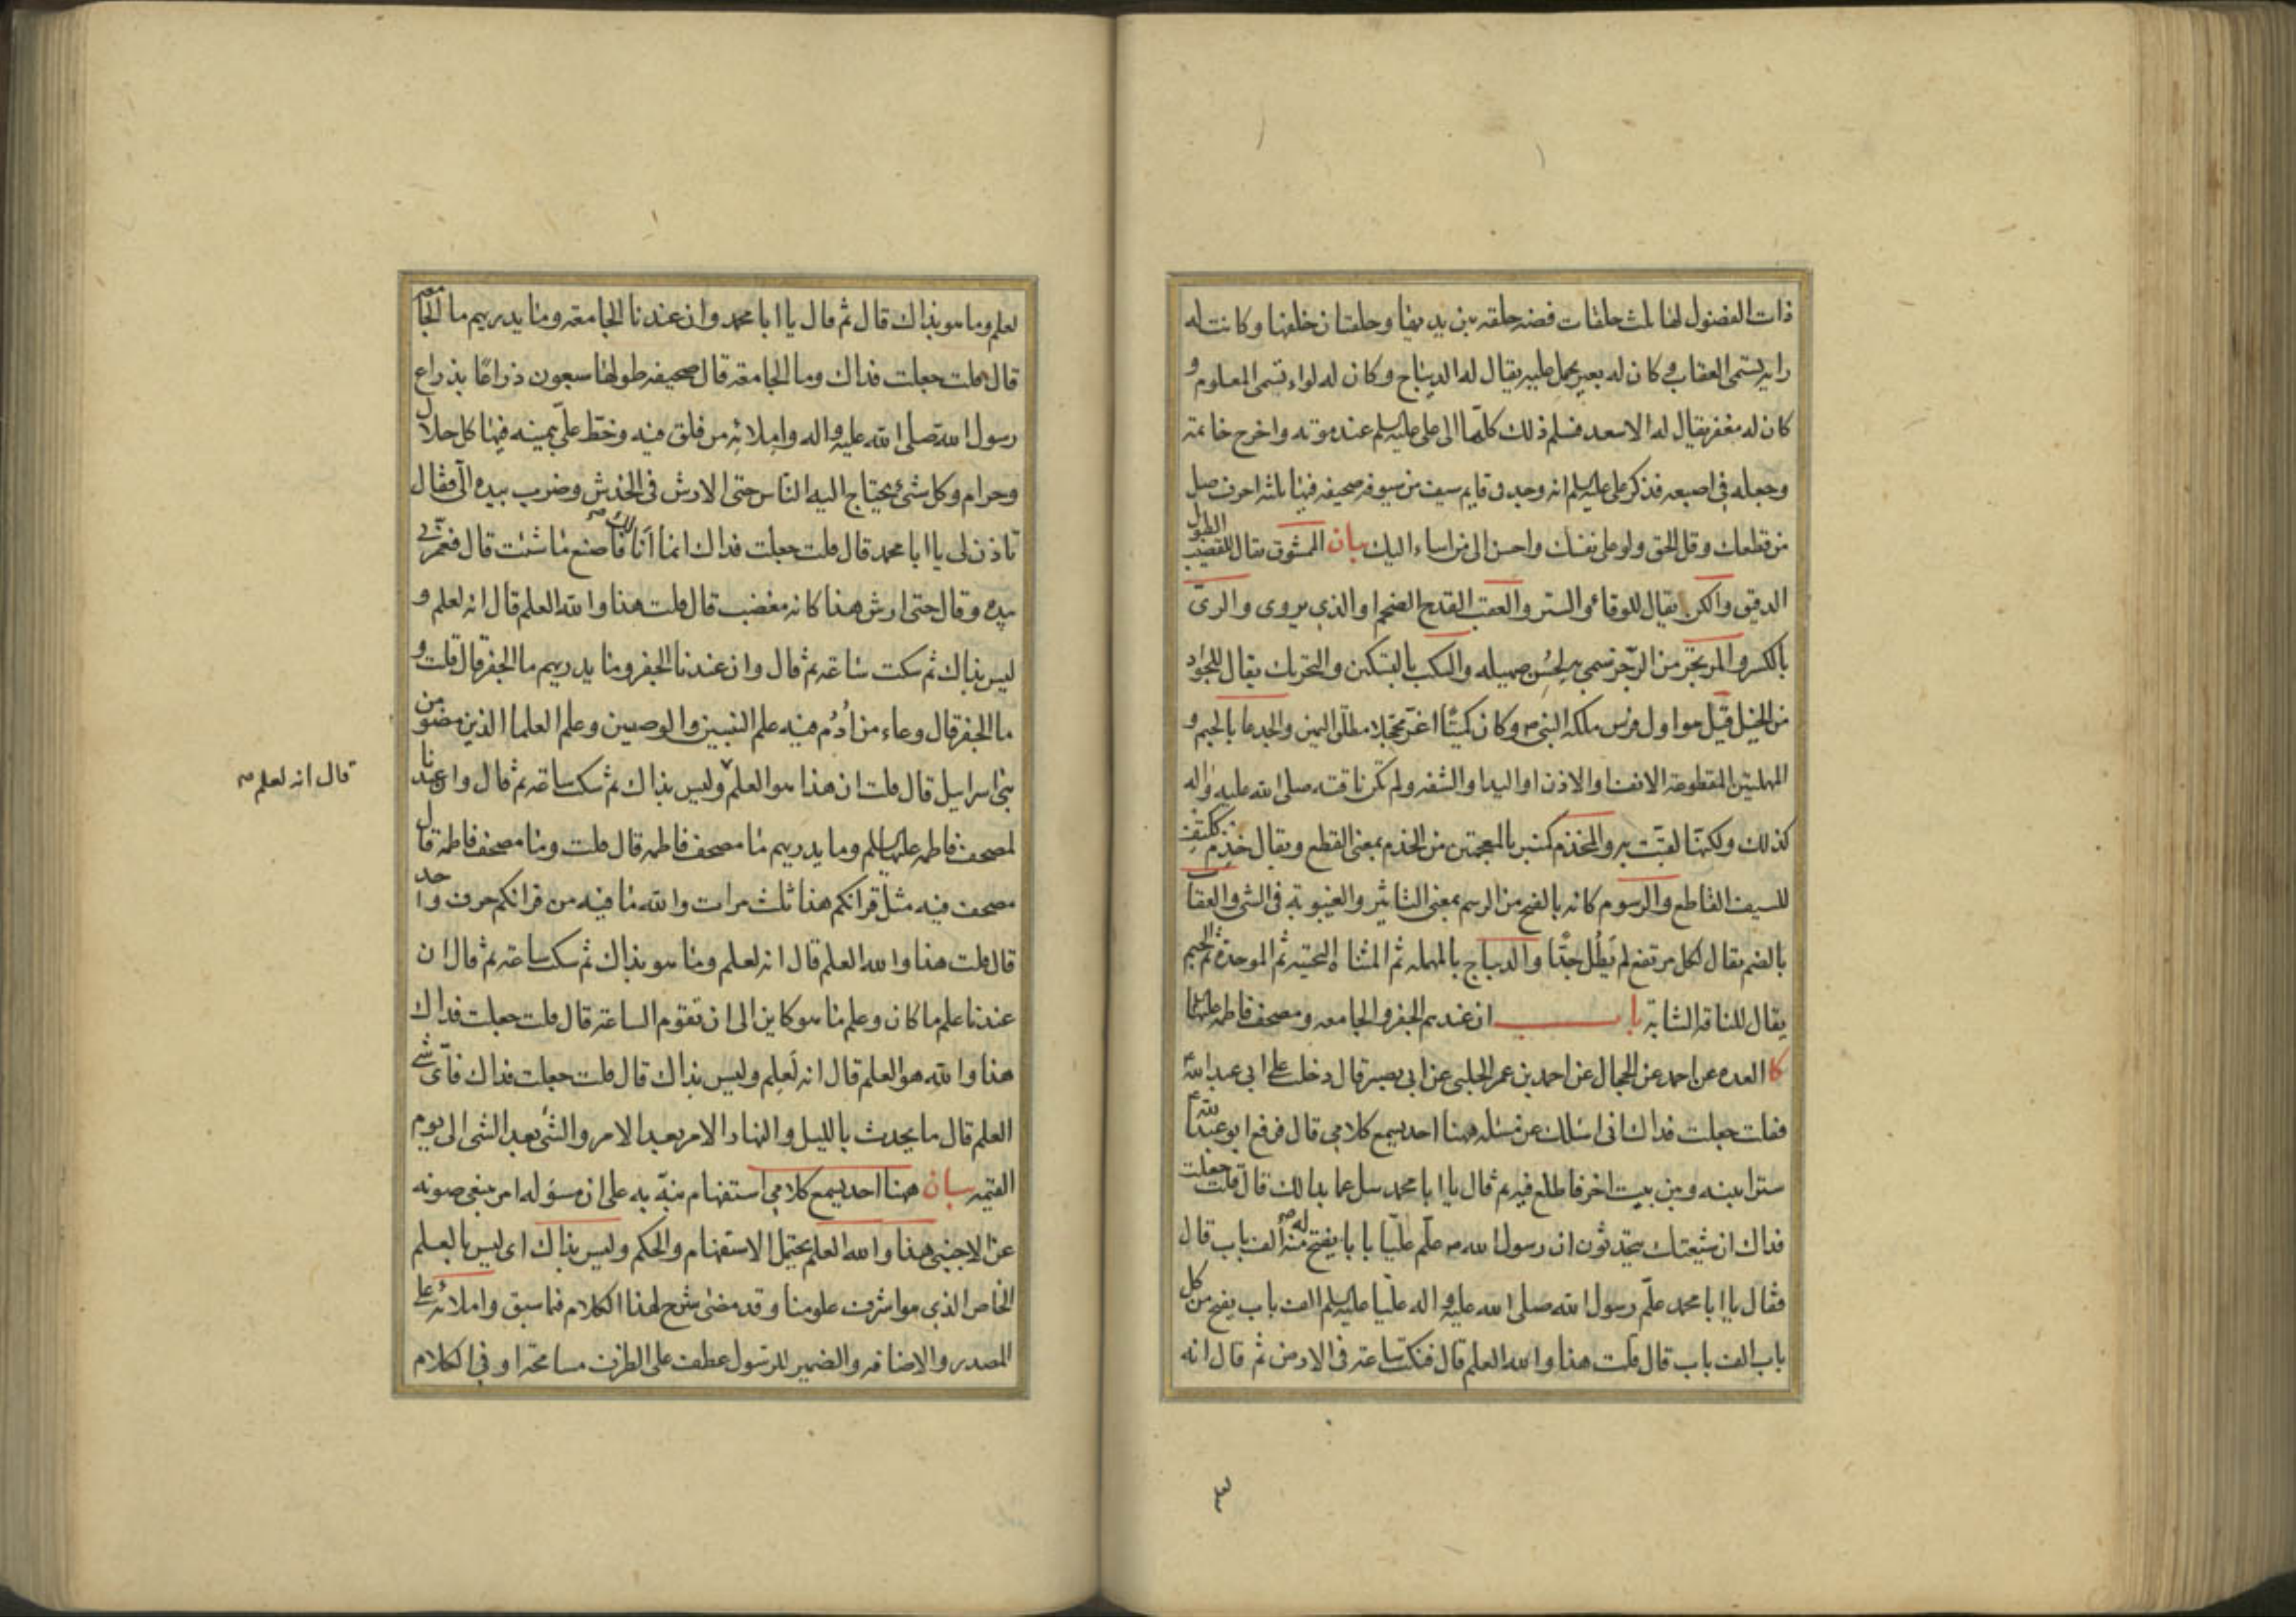 ذات الفضول لها ثلث حلقات فضه حلقه بين يديها وحلقتان خلفها وكانت له
رايه تسمى العقاب وكان له بعير يحمل عليه يقال له الديباج وكان له لواء تسمى المعلوم و
كان له مغفر يقال له الاسعد فسلم ذلك كلها الى على عليه السلم عند موته واخرج خاتمه
وجعله فى اصبعه فذكر على عليه السلم انه وجد فى قايم سيف من سيوفه صحيفه فيها ثلثه احرف صل
من قطعك وقل الحق ولو على نفسك واحسن الى من اساء اليك بيان الممشوق يقال للقضيب الطويل
الدقيق والكن يقال للوقاء والستر والعقب القدح الضخم او الذى يروى والرى
بالكسر والمرتجز من الرجز سمى به لحسن صهيله والسكب بالتسكين والتحريك يقال للجواد
من الخيل قيل هو اول فرس ملكه النبى ص وكان كميتا اغر محجلا مطلق اليمين والجدعا بالجيم و
المهملتين المقطوعه الانف او الاذن او اليد او الشفه ولم تكن ناقته صلى الله عليه واله
كذلك ولكنها لقبت به والمخذم كمنبر بالمعجمتين من الخذم بمعنى القطع ويقال خذم ككتف
للسيف القاطع والرسوم كانه بالفتح من الرسم بمعنى التاثير والغيبوبة فى الشى والعقاب
بالضم يقال لكل مرتفع لم يطل جدا والديباج بالمهمله ثم المثناة التحتيه ثم الموحدة ثم الجيم
يقال للناقه الشابة باب ان عندهم الجفر والجامعه ومصحف فاطمه عليها
كا العده عن احمد عن الحجال عن احمد بن عمر الحلبى عن ابى بصير قال دخلت على ابى عبد الله ع
فقلت جعلت فداك انى اسئلك عن مسئله ههنا احد يسمع كلامى قال فرفع ابو عبد الله ع
سترا بينه وبين بيت اخر فاطلع فيه ثم قال يا ابا محمد سل عما بدا لك قال قلت جعلت
فداك ان شيعتك يتحدثون ان رسول الله ص علم عليا بابا يفتح له منه الف باب قال
فقال يا ابا محمد علم رسول الله صلى الله عليه واله عليا عليه السلم الف باب يفتح من كل
باب الف باب قال قلت هذا والله العلم قال فنكت ساعة فى الارض ثم قال انه
لعلم وما هو بذاك قال ثم قال يا ابا محمد وان عندنا الجامعه وما يدريهم ما الجامعه
قال قلت جعلت فداك وما الجامعة قال صحيفه طولها سبعون ذراعا بذراع
رسول الله صلى الله عليه واله واملائه من فلق فيه وخط على بيمينه فيها كل حلال
وحرام وكل شىء يحتاج اليه الناس حتى الارش فى الخدش وضرب بيده الى فقال
تاذن لى يا ابا محمد قال قلت جعلت فداك انما انا لك فاصنع ما شئت قال فغمزنى
بيده وقال حتى ارش هذا كانه مغضب قال قلت هذا والله العلم قال انه لعلم و
ليس بذاك ثم سكت ساعه ثم قال وان عندنا الجفر وما يدريهم ما الجفر قال قلت و
ما الجفر قال وعاء من أدم فيه علم النبيين والوصيين وعلم العلما الذين مضوا من
بنى اسرائيل قال قلت ان هذا هو العلم وليس بذاك ثم سكت ساعه ثم قال وان عندنا
قال انه لعلم ص
لمصحف فاطمه عليها السلم وما يدريهم ما مصحف فاطمه قال قلت وما مصحف فاطمه قال
مصحف فيه مثل قرانكم هذا ثلث مرات والله ما فيه من قرانكم حرف واحد
قال قلت هذا والله العلم قال انه لعلم وما هو بذاك ثم سكت ساعة ثم قال ان
عندنا علم ما كان وعلم ما هو كاين الى ان تقوم الساعة قال قلت جعلت فداك
هذا والله هو العلم قال انه لعلم وليس بذاك قال قلت جعلت فداك فاى شى
العلم قال ما يحدث بالليل والنهار الامر بعد الامر والشئ بعد الشى الى يوم
القيمه بيان ههنا احد يسمع كلامى استفهام نبه به على ان مسؤله امر ينبغى صونه
عن الاجنبى هذا والله العلم يحتمل الاستفهام والحكم وليس بذاك اى ليس بالعلم
الخاص الذى هو اشرف علومنا وقد مضى شرح لهذا الكلام فيما سبق واملائه على
المصدر والاضافه والضمير للرسول عطف على الظرف مسامحة او فى الكلام